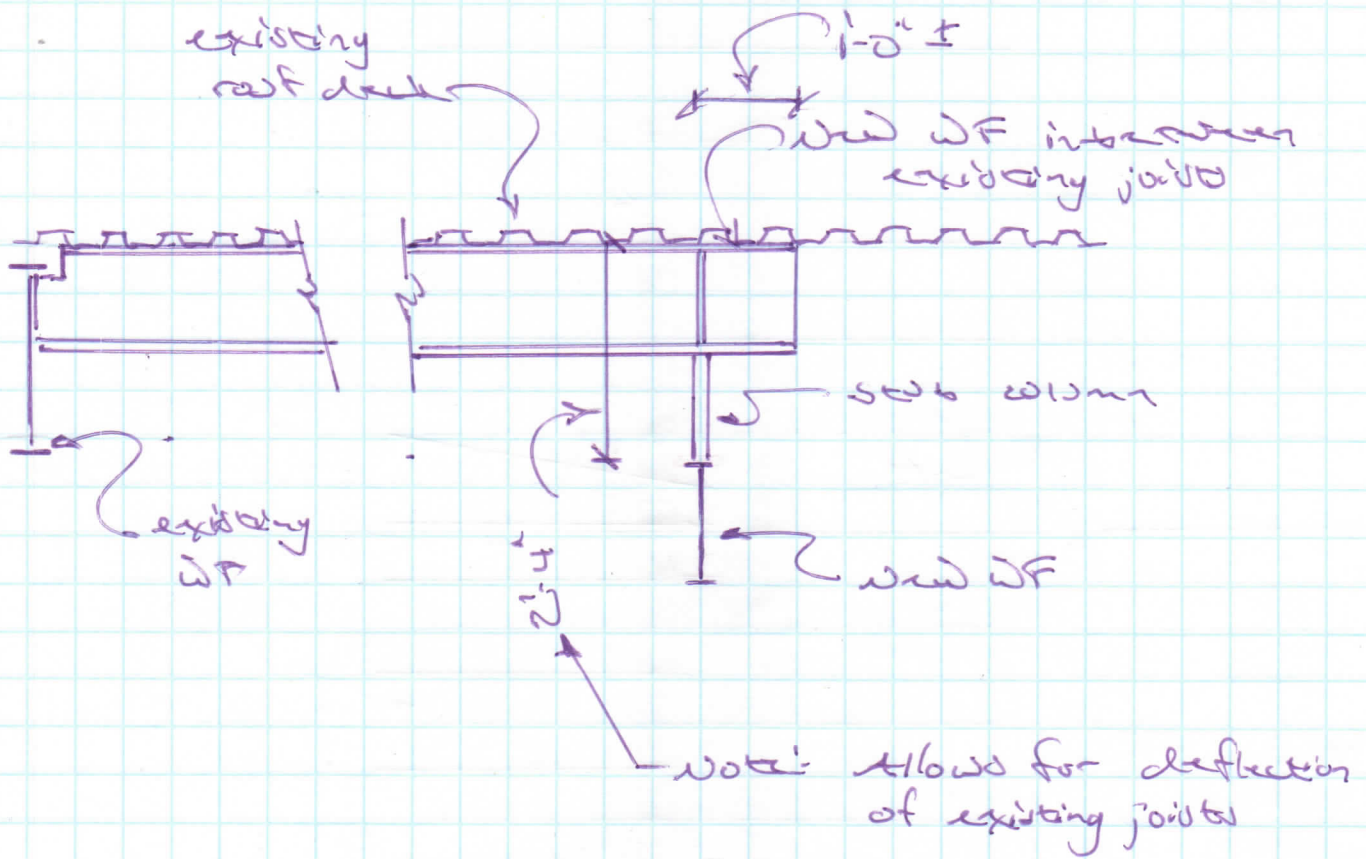 existing
roof deck
1'-0" ±
New WF in between
existing joists
stub column
existing
WF
New WF
Note: Allows for deflection
of existing joists